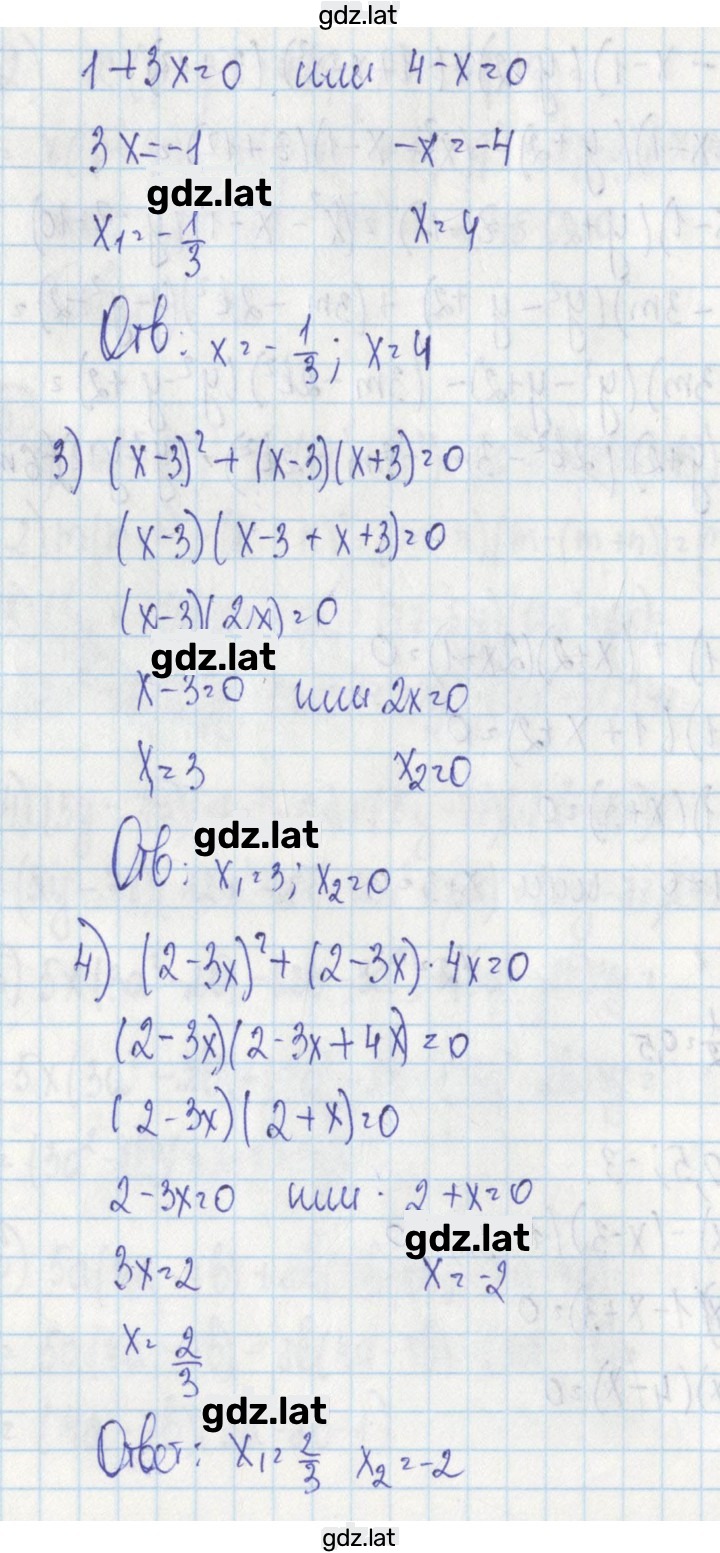 gdz.lat
1+3x=0 или 4-x=0
3x=-1 -x=-4
gdz.lat
x₁=-1/3 x=4
Отв: x=-1/3; x=4
3) (x-3)²+(x-3)(x+3)=0
(x-3)(x-3+x+3)=0
(x-3)(2x)=0
gdz.lat
x-3=0 или 2x=0
x₁=3 x₂=0
gdz.lat
Отв: x₁=3; x₂=0
4) (2-3x)²+(2-3x)·4x=0
(2-3x)(2-3x+4x)=0
(2-3x)(2+x)=0
2-3x=0 или 2+x=0
gdz.lat
3x=2 x=-2
x=2/3
gdz.lat
Ответ: x₁=2/3 x₂=-2
gdz.lat